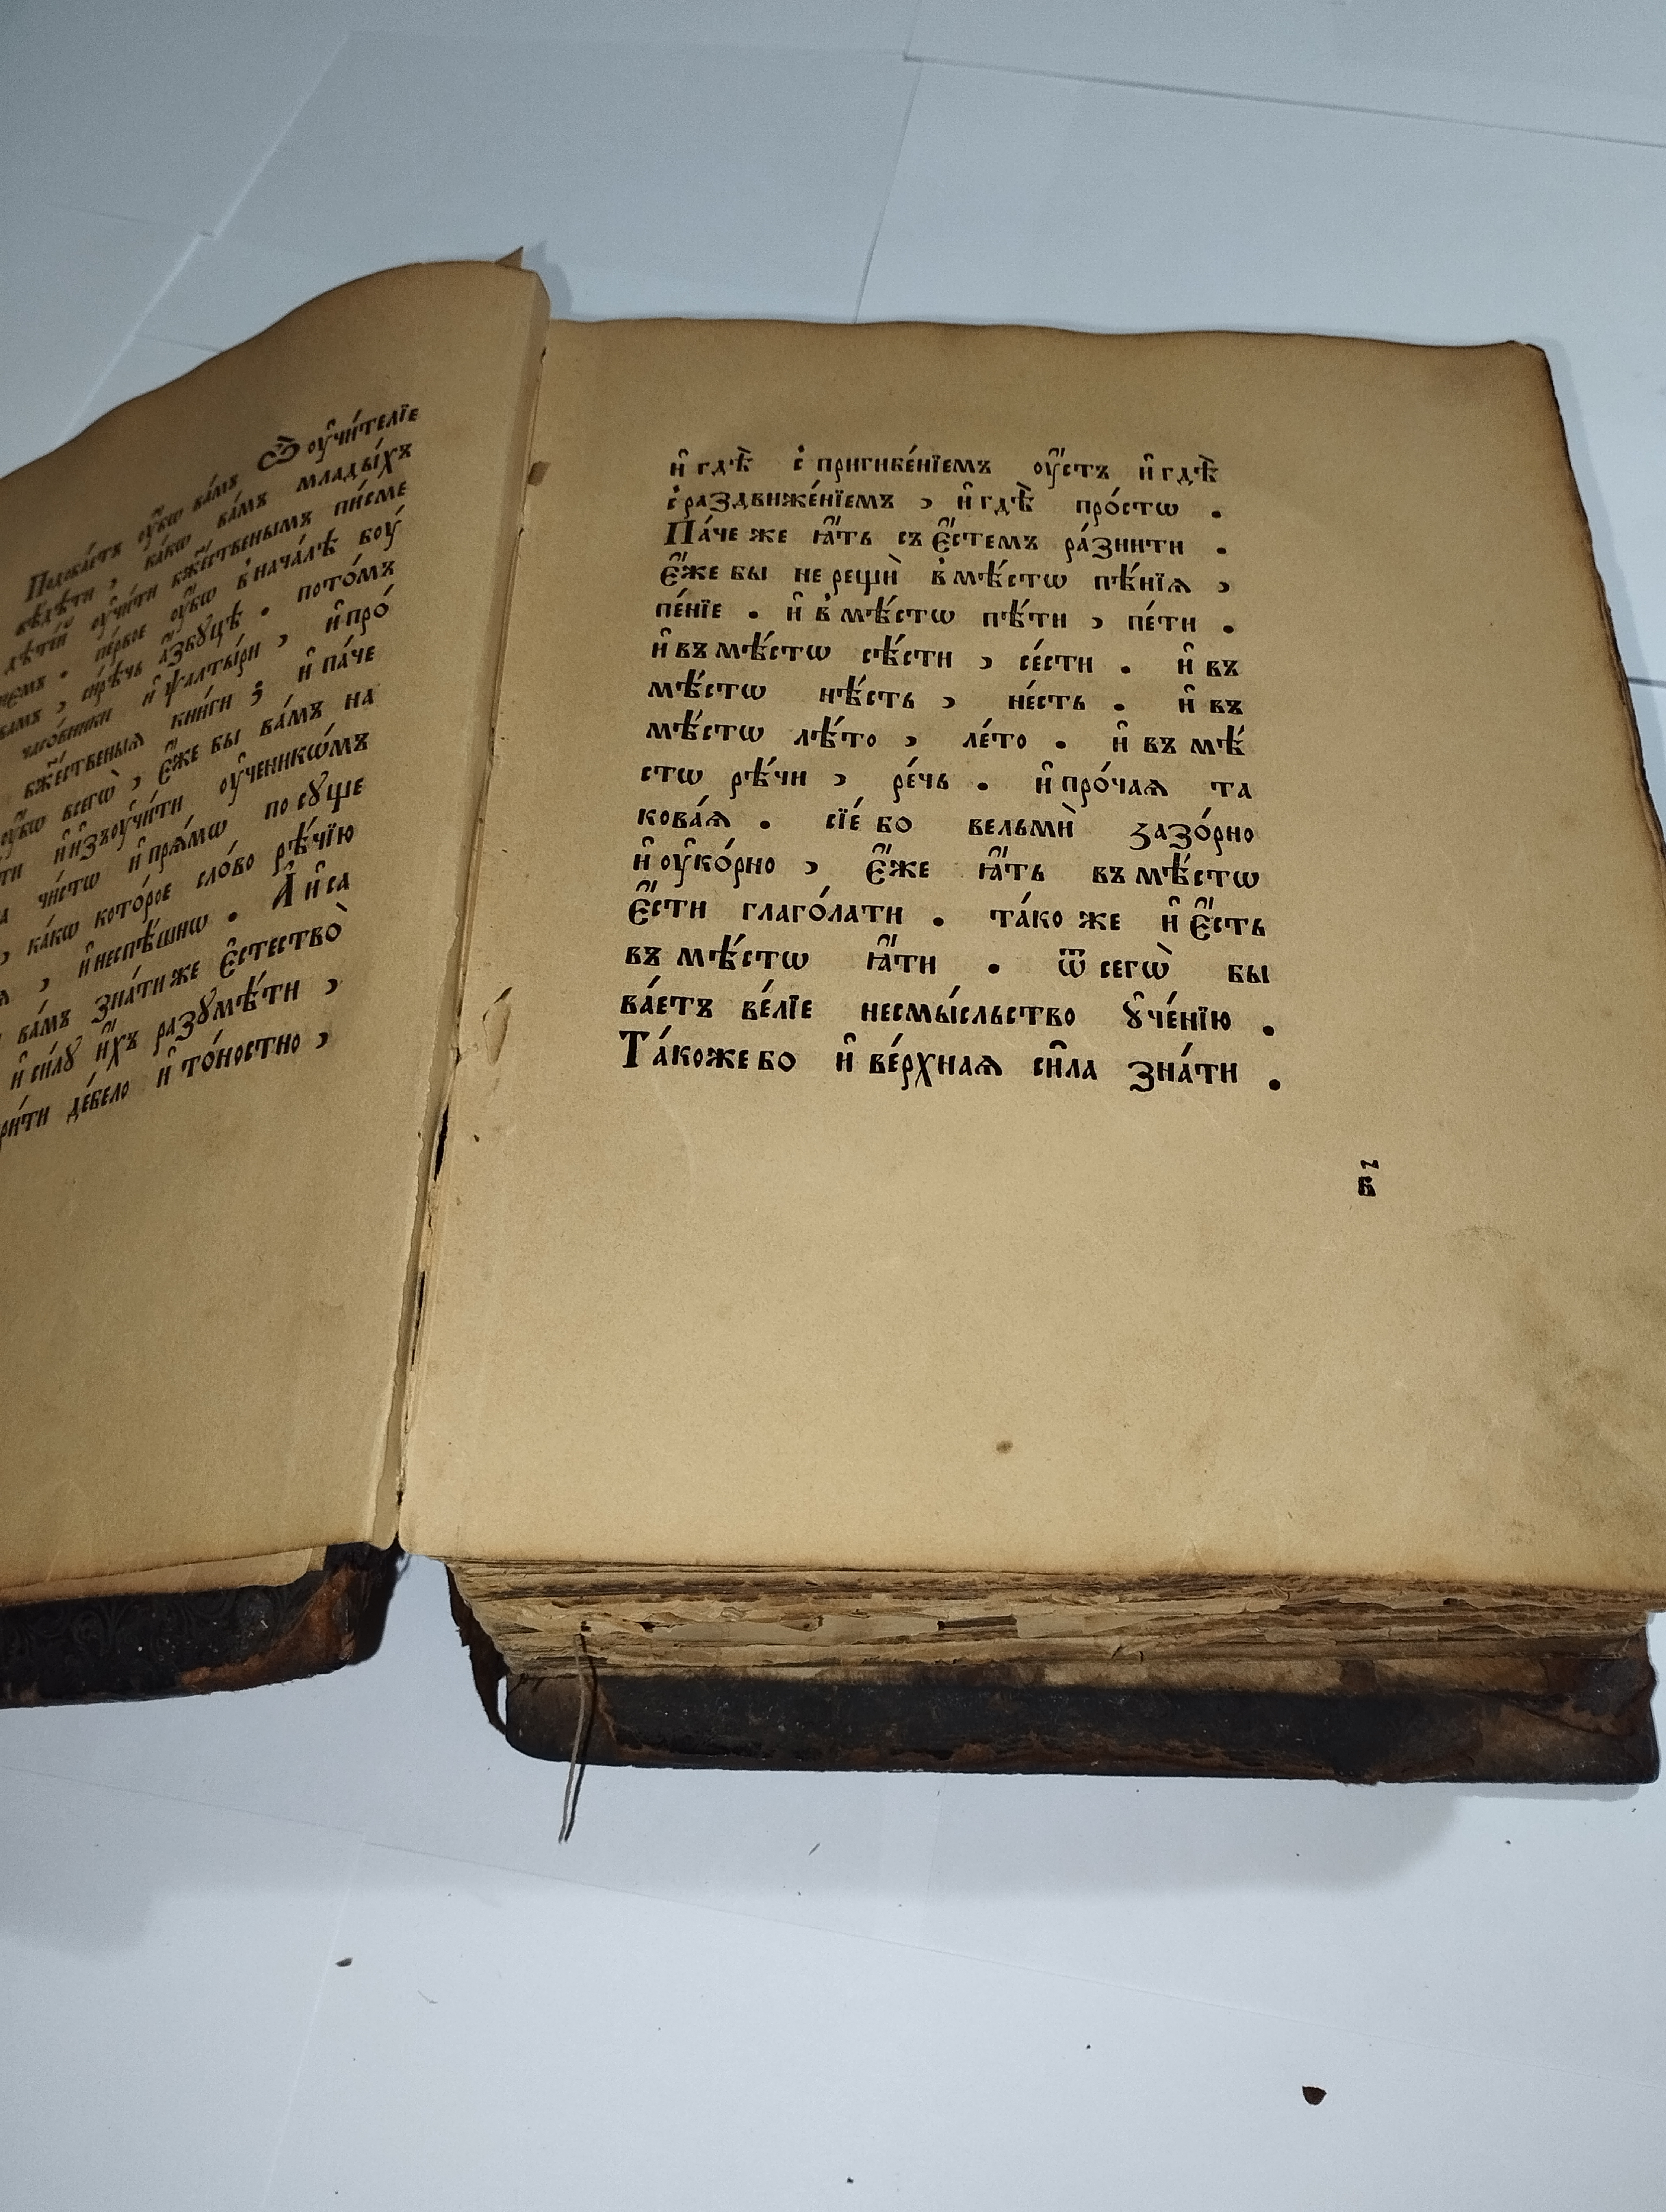 Ѿ оу҆чи́телїе
Подоба́етъ оу҆́бѡ ва́мъ
вѣ́дѣти , ка́кѡ ва́мъ млады́хъ
дѣте́й оу҆чи́ти бж҃е́ственымъ пи́сме
не́мъ . пе́рвое оу҆́бѡ в нача́лѣ боу́
вамъ , си́рѣчь а҆́збꙋцѣ . пото́мъ
часо́вники и҆ ѱалты́ри , и҆ про́
бж҃е́ственыѧ кни́ги ; и҆ па́че
оу҆́бѡ всегѡ̀ , є҆́же бы ва́мъ на
ти и҆ и҆зъоучи́ти оу҆ченикѡ́мъ
чи́стѡ и҆ прѧ́мѡ по сꙋще
, ка́кѡ кото́рое сло́во рѣ́чїю
, и҆ неспѣ́шнѡ . А҆ и҆ са
ва́мъ зна́ти же є҆стество̀
и҆ си́лꙋ и҆́хъ разꙋмѣ́ти ,
ри́ти дебе́ло и҆ то́ностно ,
и҆ гдѣ̀ с пригибе́нїемъ оу҆́стъ и҆ гдѣ̀
с раздвиже́нїемъ , и҆ гдѣ̀ про́стѡ .
Па́че же ꙗ҆́ть съ є҆́стемъ ра́знити .
є҆́же бы не рещѝ в мѣ́стѡ пѣ́нїѧ ,
пе́нїе . и҆ в мѣ́стѡ пѣ́ти , пе́ти .
и҆ въ мѣ́стѡ сѣ́сти , се́сти . и҆ въ
мѣ́стѡ нѣ́сть , не́сть . и҆ въ
мѣ́стѡ лѣ́то , ле́то . и҆ въ мѣ́
стѡ рѣ́чи , ре́чь . и҆ про́чаѧ та
кова́ѧ . сїе́ бо вельмѝ зазо́рно
и҆ оу҆ко́рно , є҆́же ꙗ҆́ть въ мѣ́стѡ
є҆́сти глаго́лати . та́ко же и҆ є҆́сть
въ мѣ́стѡ ꙗ҆́ти . ѿ сегѡ̀ бы
ва́етъ ве́лїе несмы́сльство ꙋ҆че́нїю .
Та́коже бо и҆ ве́рхнаѧ си́ла зна́ти .
в҃